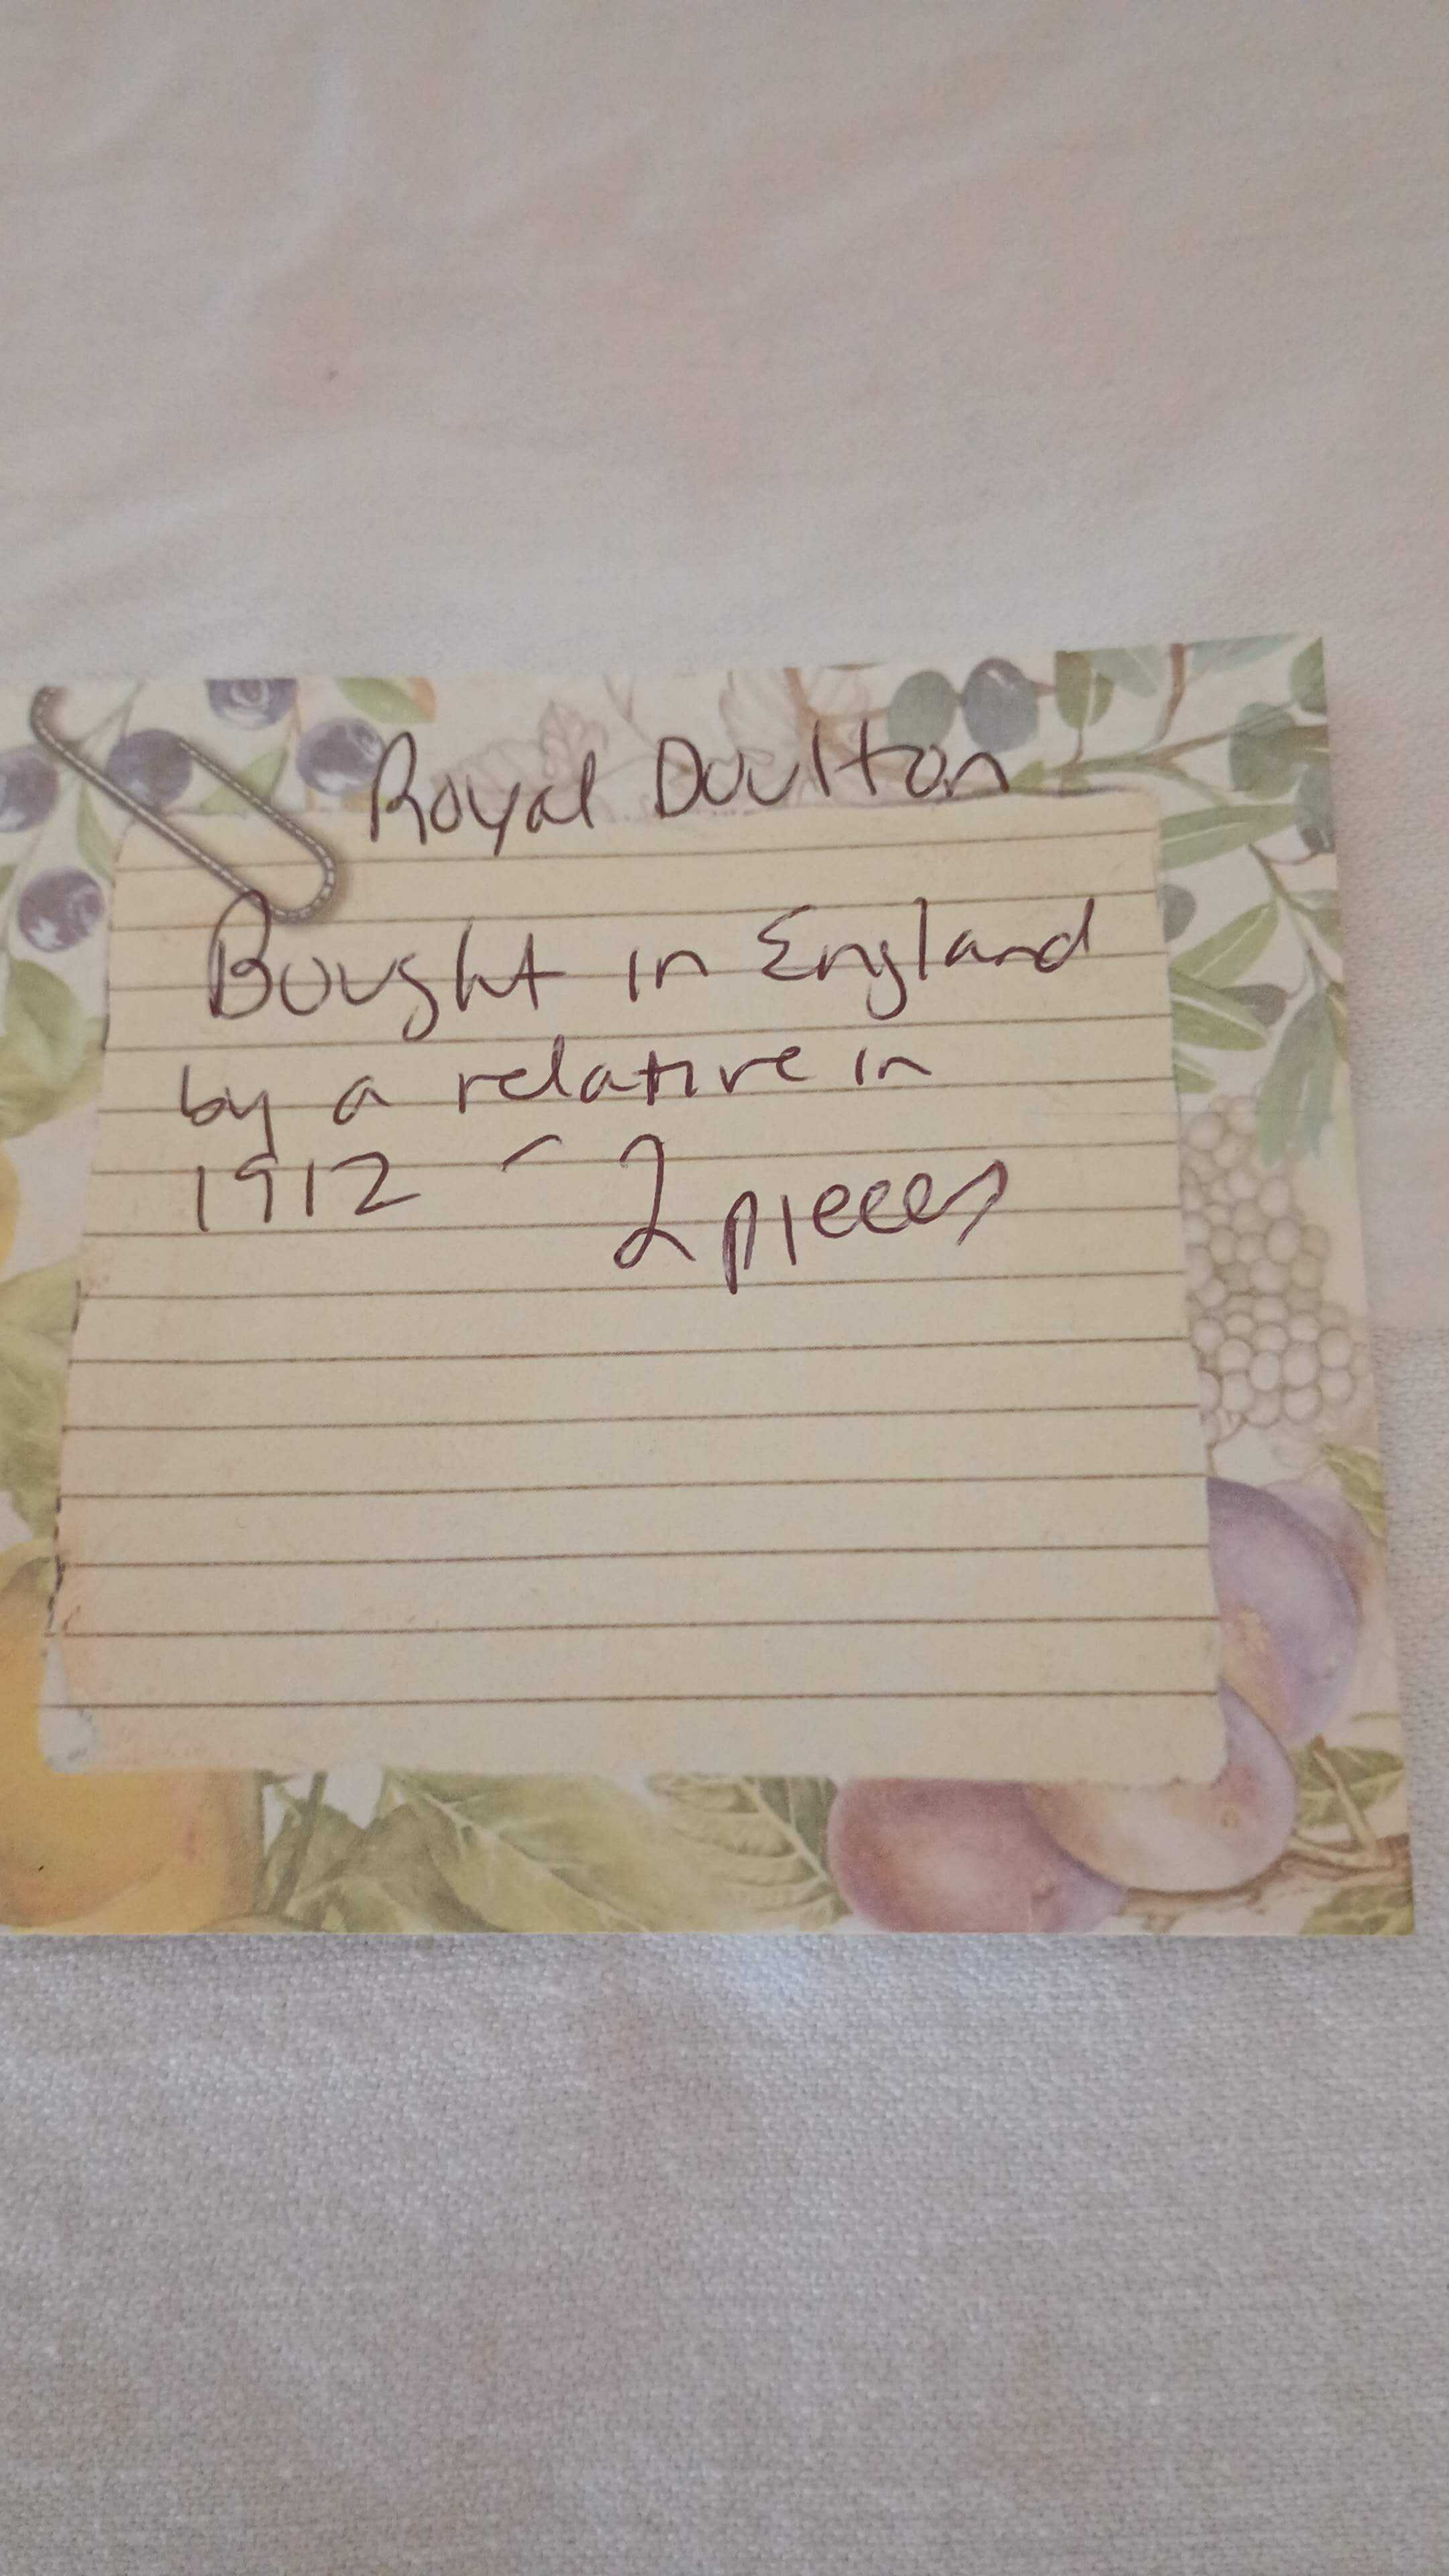 Royal Doulton
Bought in England
by a relative in
1912 - 2 pieces